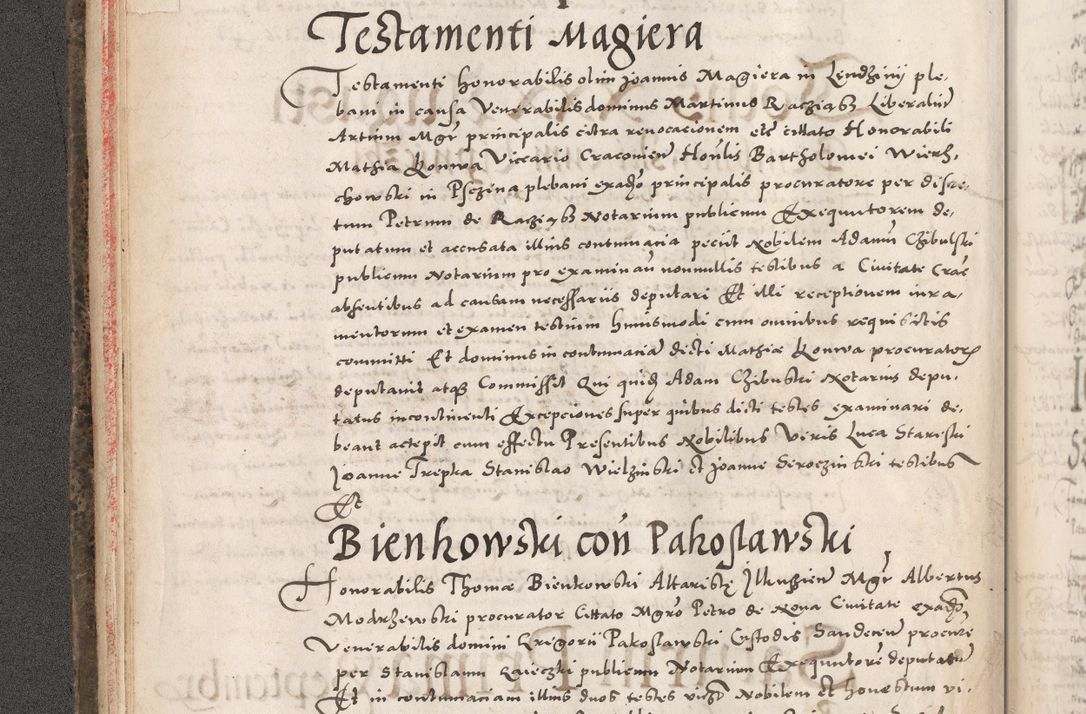 Testamenti Magiera
Testamenti honorabilis olim Joannis Magiera in Lendziny ple-
bani in causa Venerabilis dominus Martinus Racziąsz Liberaliu
Artium Mgr principalis citra revocacionem etc cittato Honorabili
Mathia Konwa Viccario Cracovien Honlis Bartholomei Wierz-
chowski in Psczina plebani ex ado principalis procuratore per discre-
tum Petrum de Racziąsz Notarium publicum Exequutorem de-
putatum et accusata illius contumacia peciit Nobilem Adamu Czibulski
publicum Notarium pro examinau nonnullis testibus a Civitate Crac
absentibus ad causam necessariis deputari Et illi receptionem iura-
mentorum et examen testium huiusmodi cum omnibus requisitis
committi Et dominus in contumacia dicti Mathiæ Konwa procuratoris
deputavit atque Commissit Qui quidem Adam Czibulski Notarius depu-
tatus incontinenti Excepciones super quibus dicti testes examinari de-
beant acceptit cum effectu Presentibus Nobilibus Veris Luca Stariski
Joanne Trepka Stanislao Wielzinski et Joanne Seroczinski testibus
Et
Bienkowski con Pakoslawski
Honorabilis Thomæ Bienkowski Altaristę Ilkussien Mgr Albertus
Modrzewski procurator Cittato Mgro Petro de Nova Civitate ex ado
Venerabilis domini Grigorii Pakoslawski Custodis Sandecen procure
per Stanislaum publicum Notarium Exequutore deputatu
Et in contumaciam illius duos testes Nobilem et honestum vi-